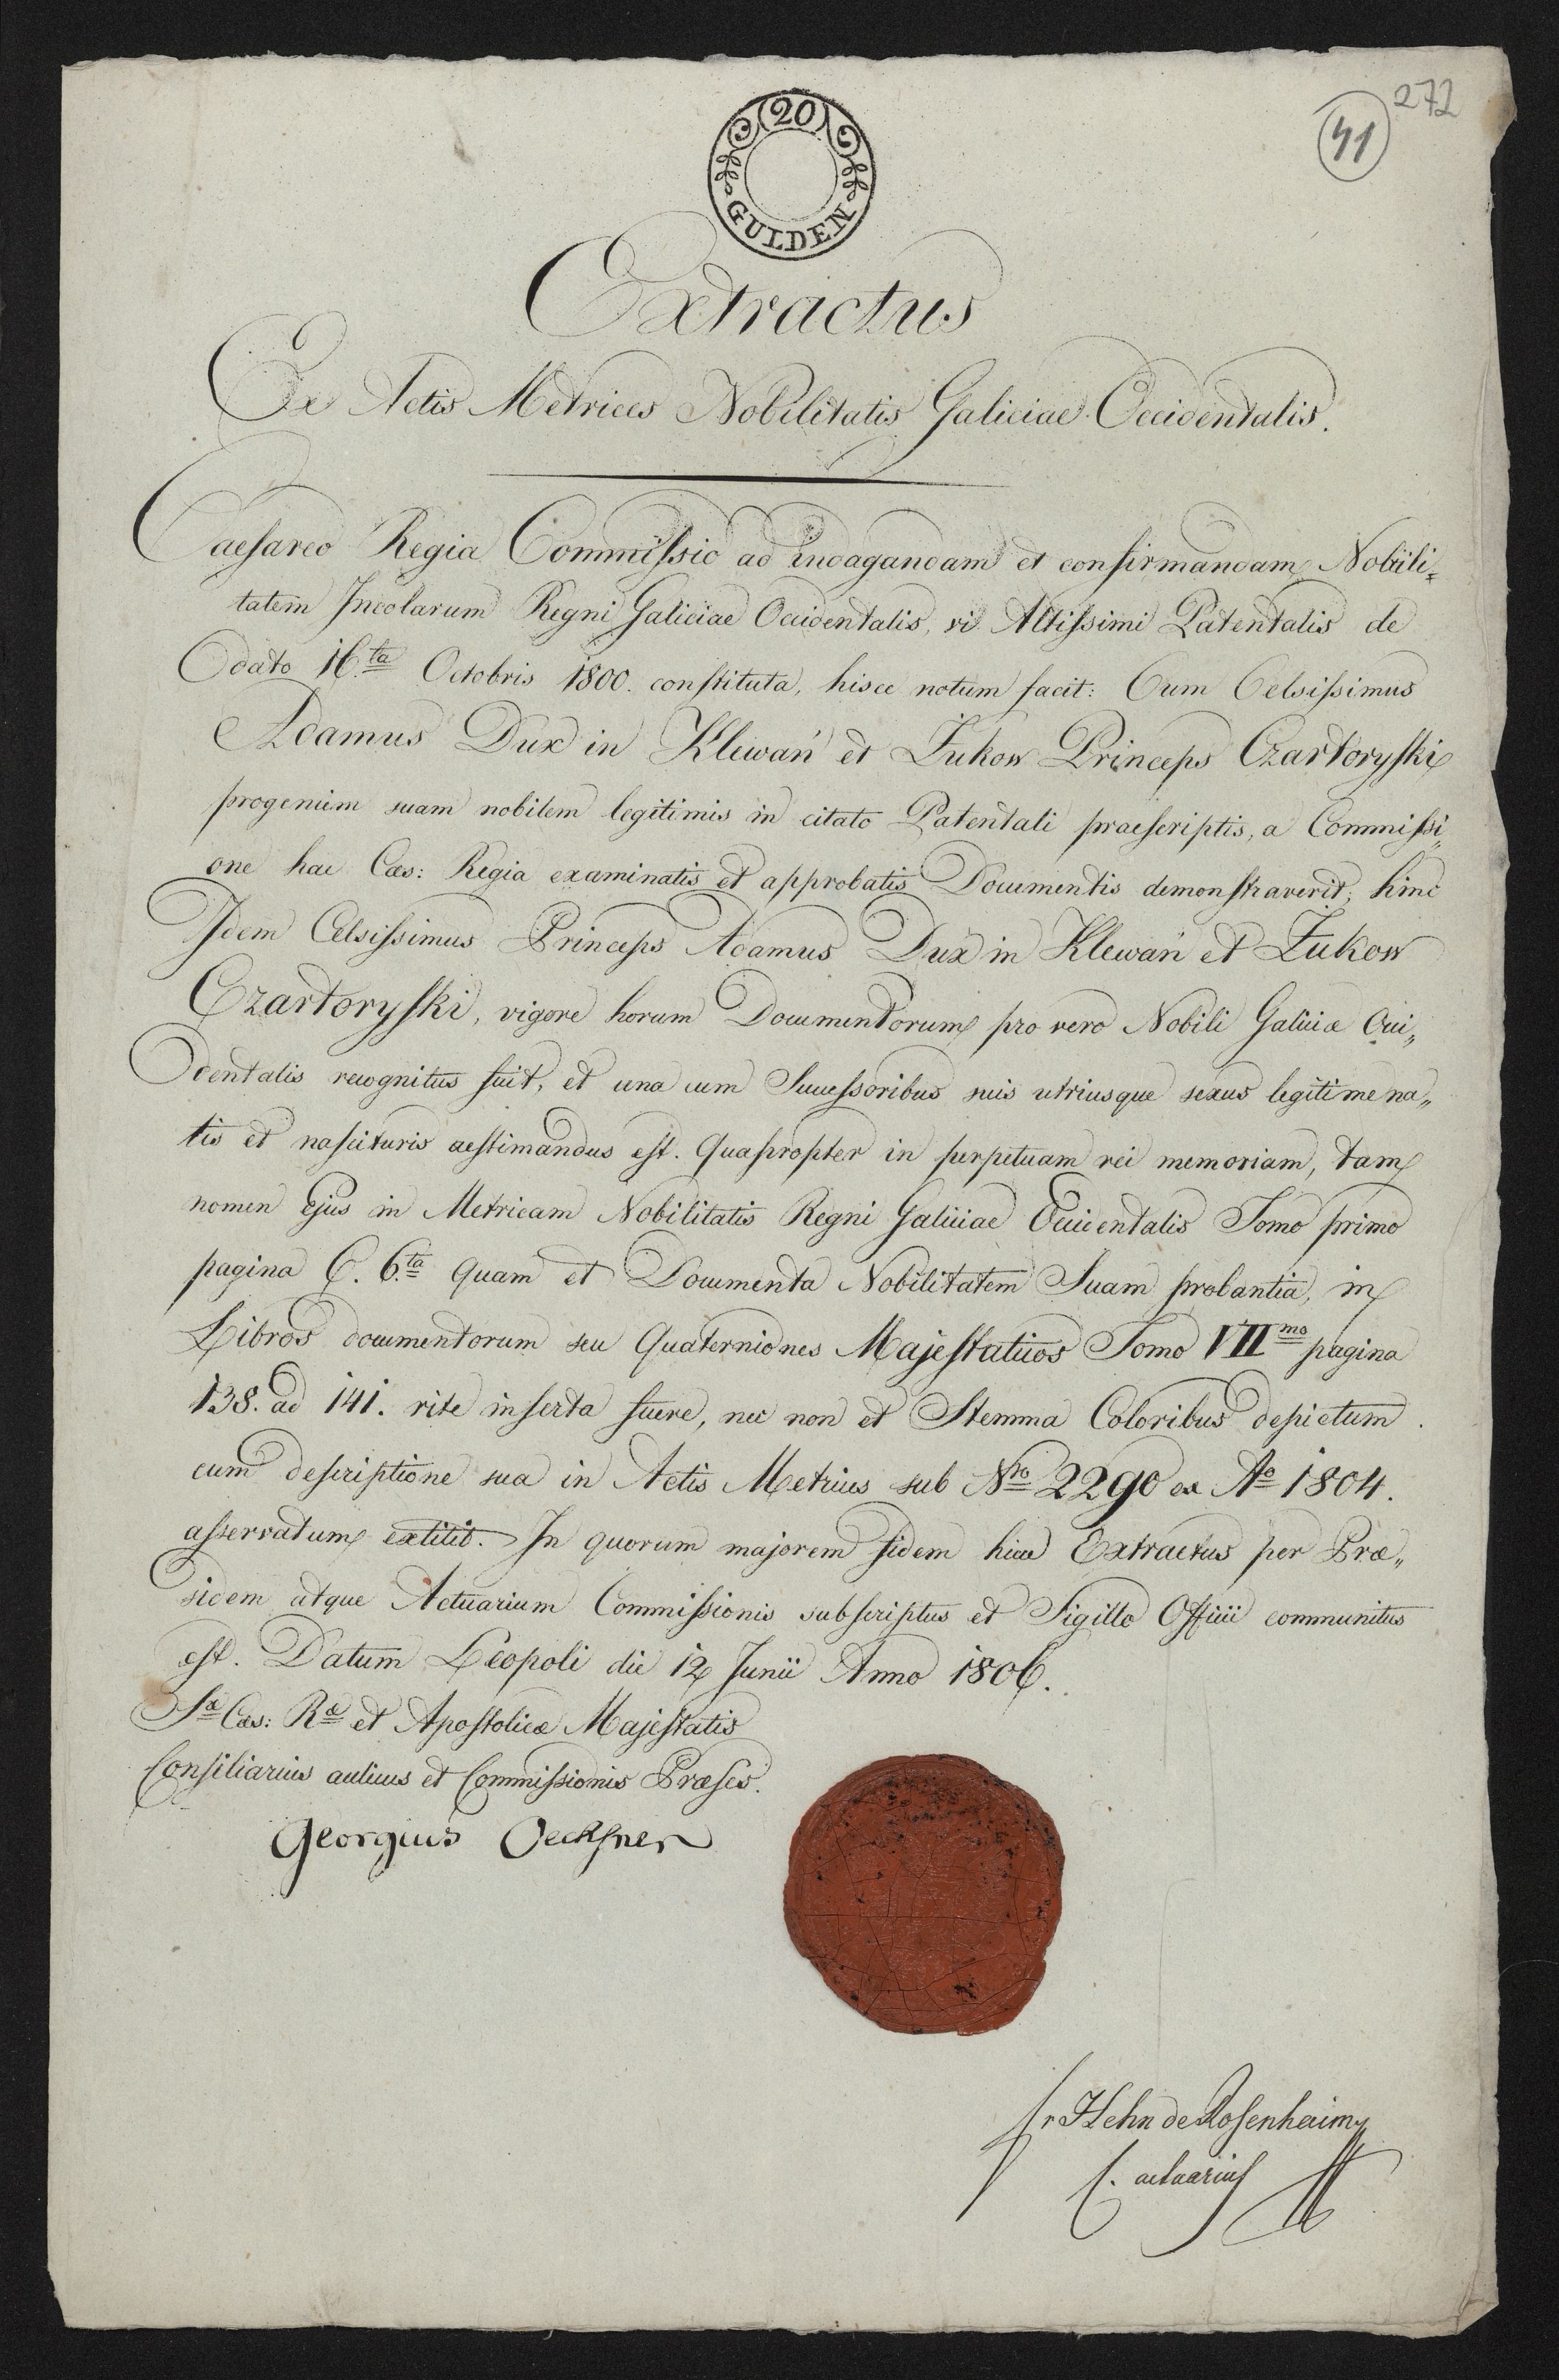 272
41
20
GULDEN
Extractus
Ex Actis Metrices Nobilitatis Galiciae Occidentalis.
Caesareo Regia Commissio ad indagandam et confirmandam Nobili=
tatem Incolarum Regni Galiciae Occidentalis, vi Altissimi Patentalis de
dato 16.ta Octobris 1800. constituta, hisce notum facit: Cum Celsissimus
Adamus Dux in Klewań et Żukow Princeps Czartoryski
progeniem suam nobilem legitimis in citato Patentali praescriptis, a Commissi„
one hac Caes: Regia examinatis et approbatis Documentis demonstraverit; hinc
Idem Celsissimus Princeps Adamus Dux in Klewań et Żukow
Czartoryski, vigore horum Documentorum pro vero Nobili Galiciæ Occi„
dentalis recognitus fuit, et una cum Successoribus suis utriusque sexus legitime na„
tis et nascituris aestimandus est. Quapropter in perpetuam rei memoriam, tam
nomen Ejus in Metricam Nobilitatis Regni Galiciae Occidentalis Tomo primo
pagina C. 6.ta quam et Documenta Nobilitatem Suam probantia, in
Libros documentorum seu Quaterniones Majestaticos Tomo VII mo pagina
138. ad 141. rite inserta fuere, nec non et Stemma Coloribus depictum
cum descriptione sua in Actis Metrices sub Nro 2290 ex Ao 1804.
asservatum extitit. In quorum majorem fidem hicce Extractus per Præ„
sidem atque Actuarium Commissionis subscriptus et Sigillo Officii communitus
est. Datum Leopoli die 12 Junii Anno 1806.
Sæ Cæs: Ræ et Apostolicæ Majestatis
Consiliarius aulicus et Commissionis Præses.
Georgius Oechsner
Hehn de Rosenheim
C. actuarius